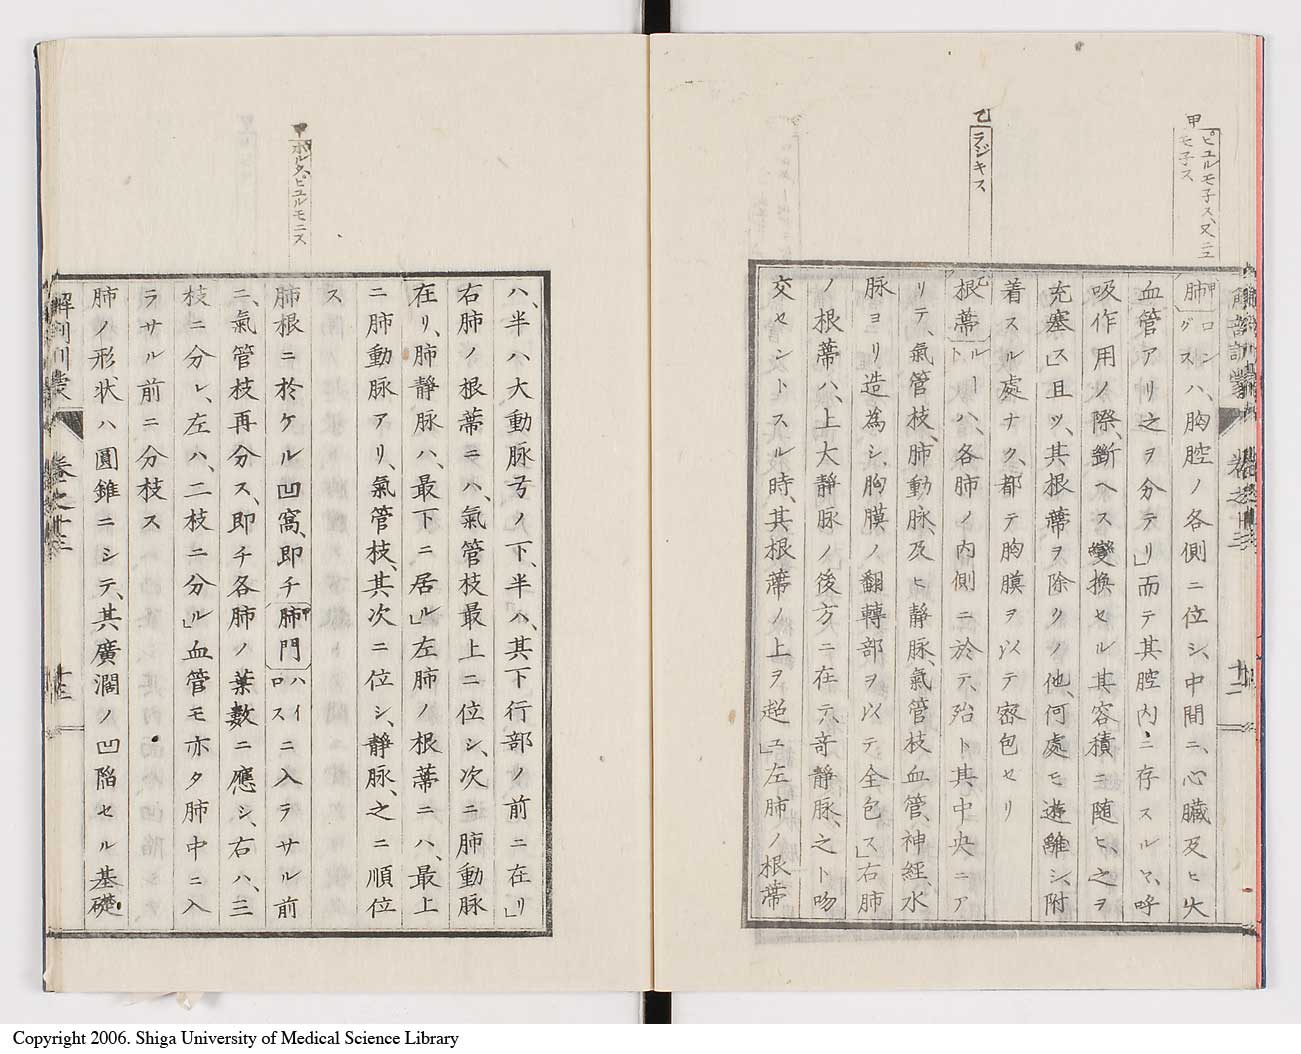 甲 ピユルモ子ス、又ニユ
モ子ス
乙 ラジキス
解剖訓蒙
卷之十三
十二
肺 ロングスハ、胸腔ノ各側ニ位シ、中間ニ、心臓及ヒ大
血管アリ之ヲ分テリ」而テ其腔内ニ存スルヤ、呼
吸作用ノ際、斷ヘス變換セル其容積ニ随ヒ、之ヲ
充塞ス」且ツ、其根蔕ヲ除クノ他、何處モ遊離シ、附
着スル處ナク、都テ胸膜ヲ以テ密包セリ
乙根蔕 ルートハ、各肺ノ内側ニ於テ、殆ト其中央ニア
リテ、氣管枝、肺動脉、及ヒ靜脉、氣管枝血管、神經、水
脉ヨリ造為シ、胸膜ノ翻轉部ヲ以テ全包ス」右肺
ノ根蔕ハ、上大靜脉ノ後方ニ在テ、奇靜脉、之ト吻
交セントスル時、其根蔕ノ上ヲ超ユ」左肺ノ根蔕
甲 ポルタ、ピユルモニス
ハ、半ハ大動脉弓ノ下、半ハ、其下行部ノ前ニ在リ」
右肺ノ根蔕ニハ、氣管枝最上ニ位シ、次ニ肺動脉
在リ、肺靜脉ハ、最下ニ居ル」左肺ノ根蔕ニハ、最上
ニ肺動脉アリ、氣管枝、其次ニ位シ、靜脉、之ニ順位
ス
肺根ニ於ケル凹窩、即チ甲肺門 ハイロスニ入ラサル前
ニ、氣管枝再分ス、即チ各肺ノ葉數ニ應シ、右ハ、三
枝ニ分レ、左ハ、二枝ニ分ル」血管モ亦タ肺中ニ入
ラサル前ニ分枝ス
肺ノ形状ハ圓錐ニシテ、其廣濶ノ凹陷セル基礎
解剖訓蒙
卷之十三
十三
Copyright 2006. Shiga University of Medical Science Library